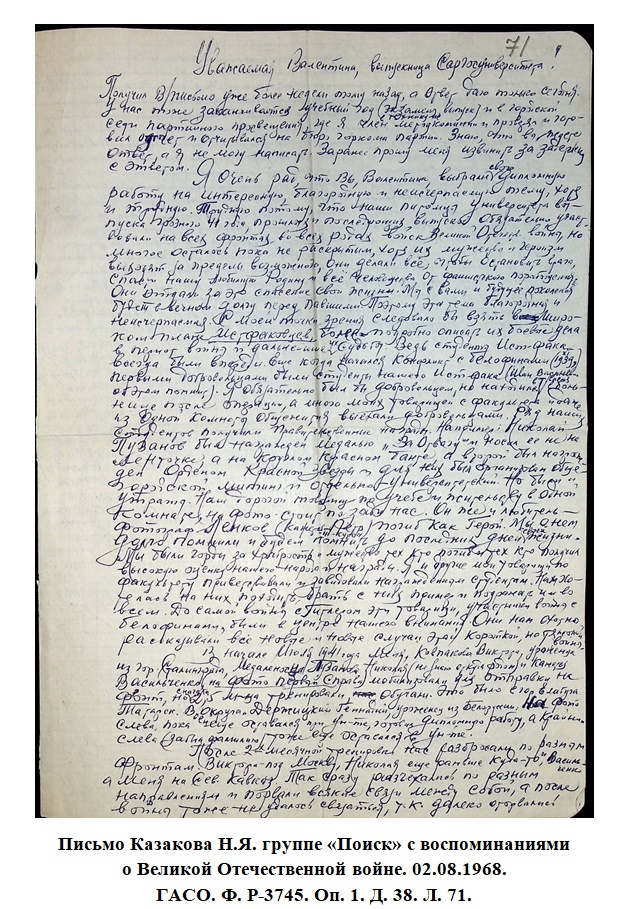 71
Уважаемая Валентина, выпускница Саргосуниверситета!
Получил В/письмо уже более недели тому назад, а ответ даю только сегодня.
У нас тоже заканчивается учебный год (экзамены, выпуск) и в городской
сети партийного просвещения, где я член методкомиссии и провел и гото-
вил отчет и отчитывался на бюро горкома партии. Знаю, что Вы ждете
ответ, а я не могу написать. Заранее прошу меня извинить за задержку
с ответом.
Я очень рад что Вы, Валентина, выбрали свою дипломную
работу на интересную, благородную и неисчерпаемую тему, хотя
и трудную. Трудную потому, что наши питомцы университета вы-
пуска грозного 41 года, прошлых, последующих выпусков обязательно участ-
вовали на всех фронтах, во всех родах войск Великой Отечеств. войны. Но
многое осталось пока не раскрытым, хотя их мужество и героизм
выходят за пределы возможного. Они делали всё, чтобы остановить врага,
спасти нашу любимую Родину и всё человечество от фашистского порабощения.
Они отдали за это столетие свои жизни. Мы с вами и будущие поколения
будут в вечном долгу перед павшими. Поэтому эта тема благородная и
неисчерпаемая. С моей точки зрения следовало бы взять широ-
ком плане Истфаковцев, более подробно описать их боевые дела
в период войны и дальнейшие судьбы. Ведь студенты Истфака
всегда были впереди. Еще когда начался конфликт с белофинами (1939г)
первыми добровольцами были студенты нашего Истфака (Иван Васильевич
об этом помнит). Я обязательно был бы добровольцем, но находился в боль-
нице после операции, а много моих товарищей с факультета и даже
из одной комнаты общежития выехали добровольцами. Ряд наших
студентов получили Правительственные награды. Например Николай
Пузанов был награжден медалью „За Отвагу" и носил ее не на
ленточке, а на круглом красном банте, а второй был награж-
ден Орденом Красной Звезды и для них был организован обще-
городской митинг и отдельно университетский. Но были и
утраты. Наш дорогой товарищ по учебе и жительству в одной
комнате, на фото стоит позади нас. Он же и любитель–
фотограф Пенков (кажется Петр) погиб как Герой. Мы о нем
долго помнили и будем помнить до последних дней своей жизни.
Мы были горды за храбрость и мужество тех кто погиб и тех кто получил
высокую оценку нашего народа и награды. Я и другие мои товарищи по
факультету приветствовали и завидовали награжденным студентам. Нам хо-
телось на них походить, брать с них пример и подражать им во
всем. До самой войны с Гитлером эти товарищи, участники войны с
белофинами, были в центре нашего внимания. Они нам охотно
рассказывали всё новые и новые случаи этой короткой, но тяжелой
войны.
В начале июля 1941 года меня, Колпакова Виктора, уроженца
из гор. Сталинграда, Медалиста Пузанова Николая (не из того факульт.) и
Васильченко (на фото первой справа) мобилизовали для отправки на
фронт, но сначала 2 м-ца тренировали, обучали. Это было с. Горелый в лагерях
Татарск. В. Округа. Держицкий Геннадий уроженец из Белоруссии. На фото
слева, пока еще оставался при ун-те, готовил дипломную работу, а крайний
слева (забыл фамилию) тоже еще оставался в ун-те.
После 2-х месячной тренировки нас разбросали по разным
фронтам. Виктора – под Москву, Николая еще раньше куда-то, Василь-
ченко
а меня на Сев. Кавказ. Так сразу разъехались по разным
направлениям и порвали всякие связи между собой, а после
войны тоже не удалось связаться, т.к. далеко оторвались
Письмо Казакова Н.Я. группе «Поиск» с воспоминаниями
о Великой Отечественной войне. 02.08.1968.
ГАСО. Ф. Р-3745. Оп. 1. Д. 38. Л. 71.